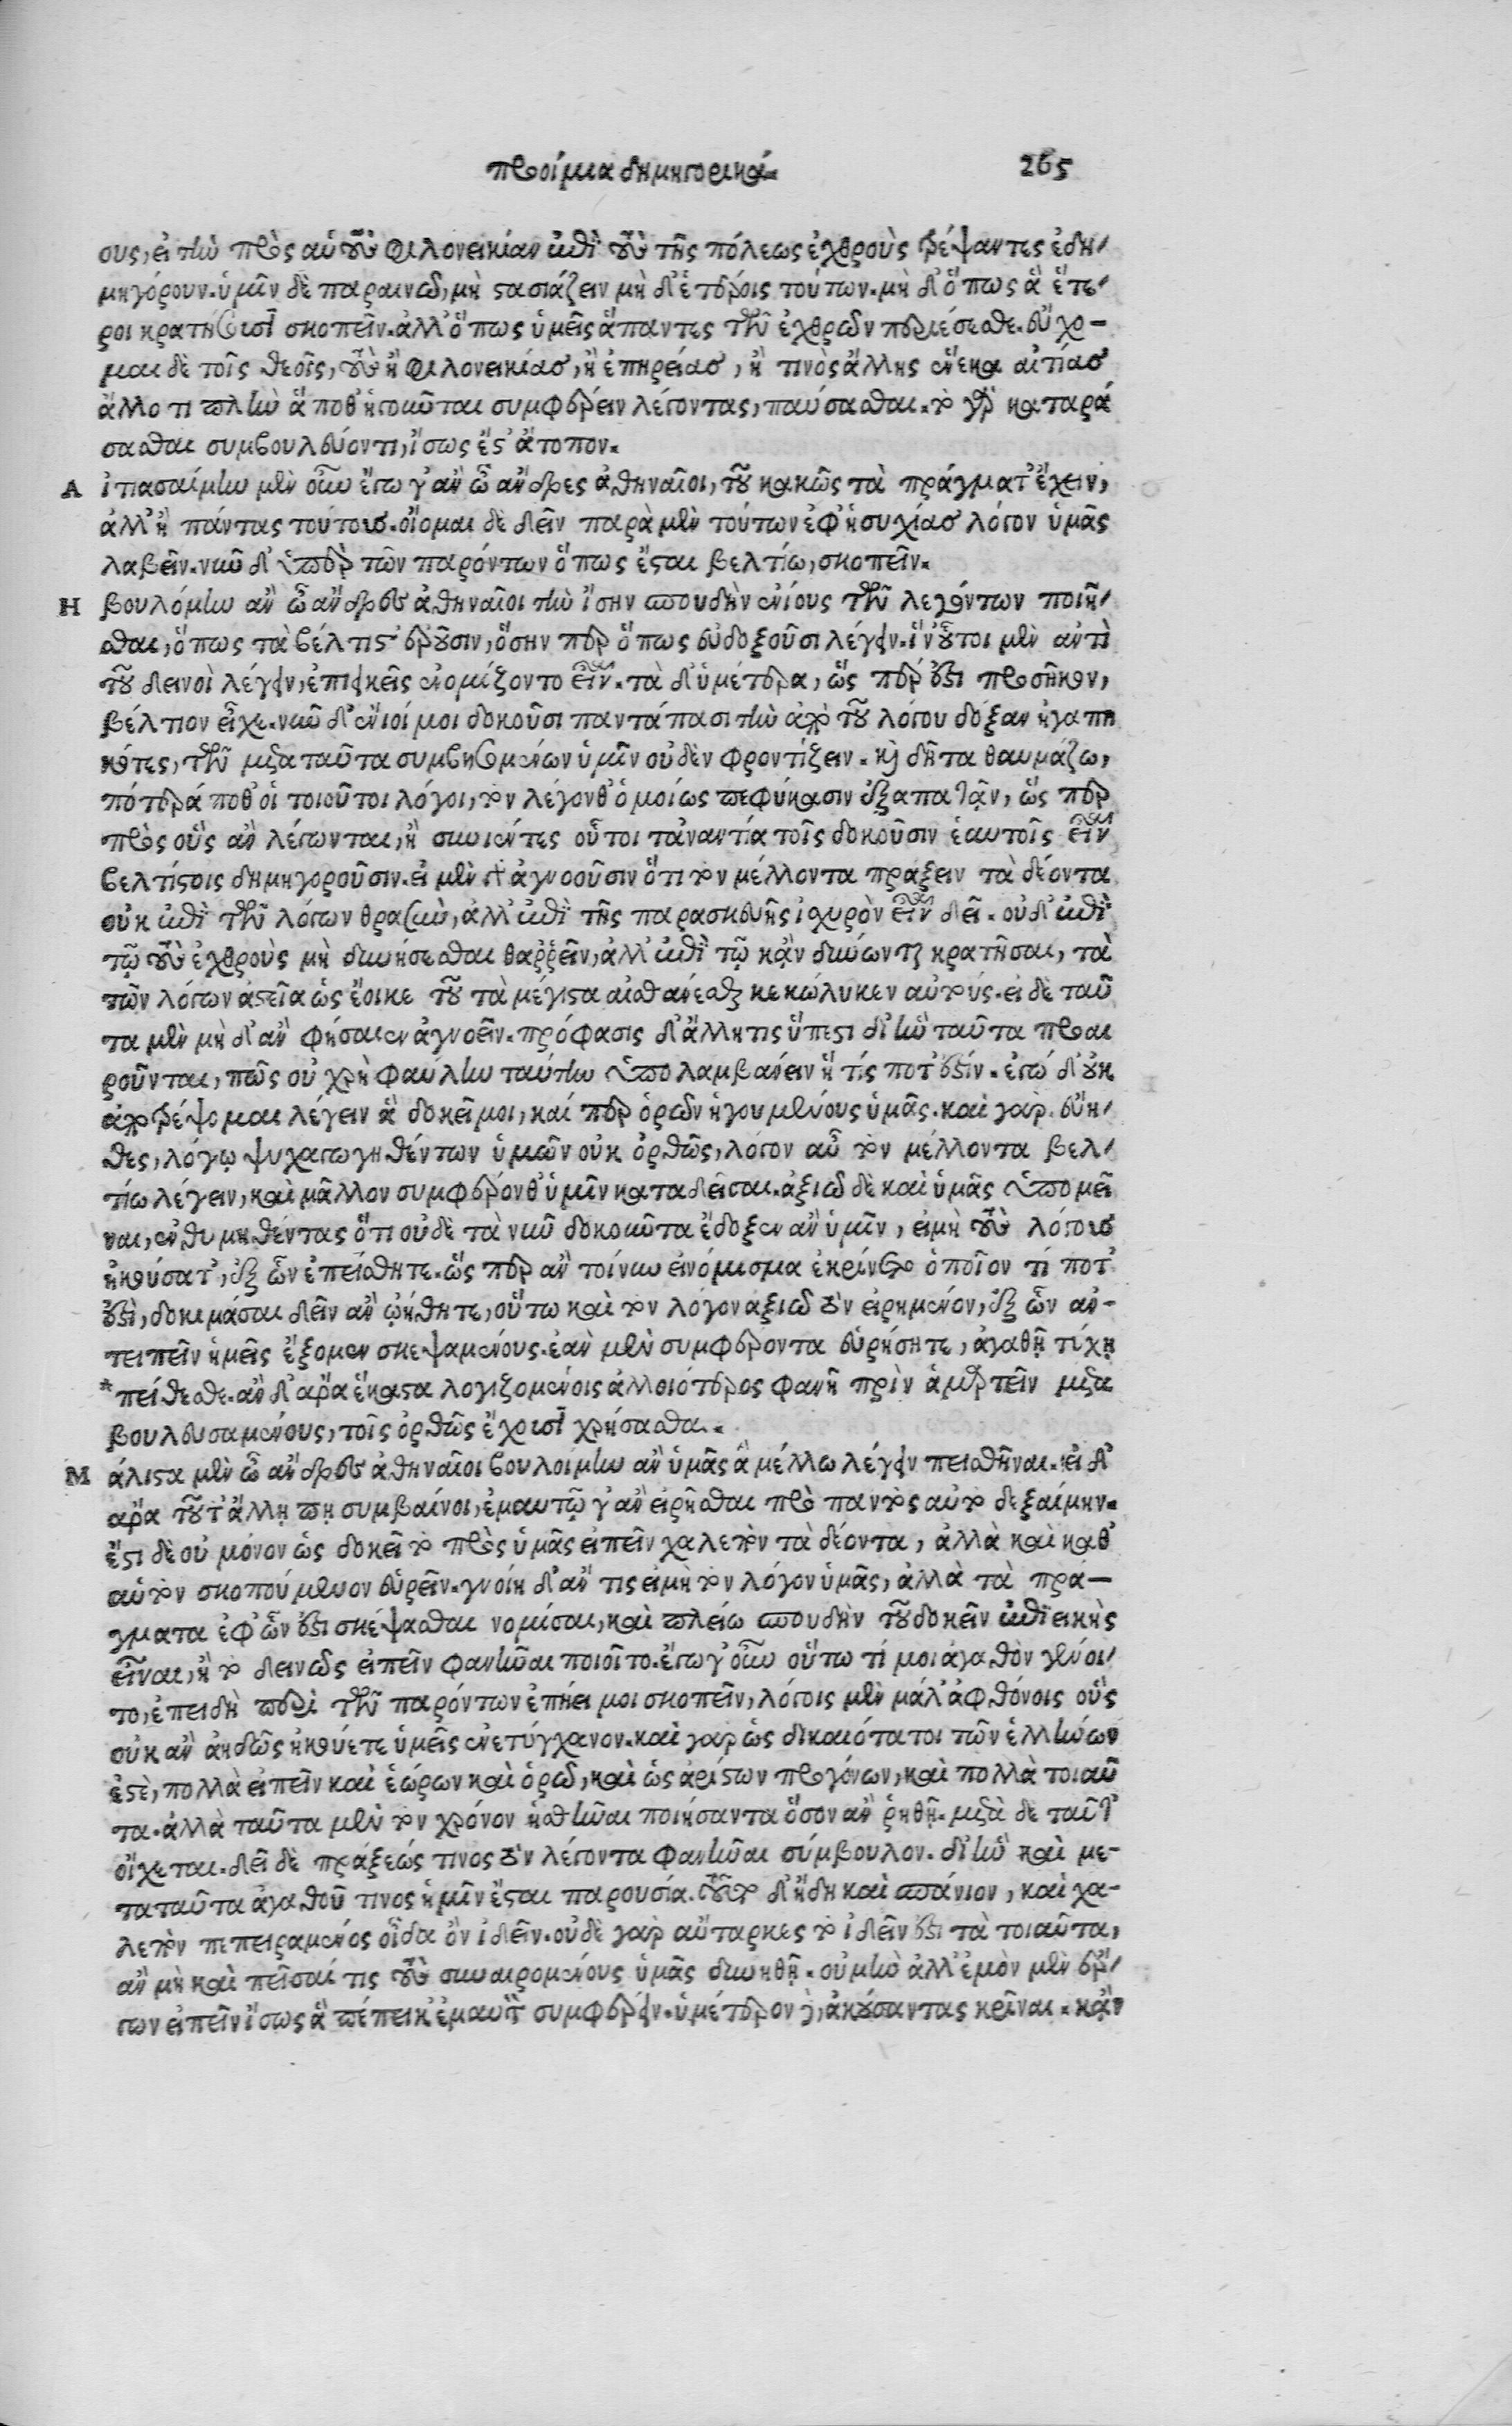 προοίμια δημηγορικά. 265
σους, εἰ τὴν πρὸς αὑτοὺς φιλονεικίαν ἐπὶ τοὺς τῆς πόλεως ἐχθροὺς τρέψαντες ἐδη-
μηγόρουν. ὑμῖν δὲ παραινῶ, μὴ στασιάζειν μηδ' ἑτέροις τούτων. μὴ δ' ὅπως ἃ ἕτε-
ροι κρατήσουσι σκοπεῖν. ἀλλ' ὅπως ὑμεῖς ἅπαντες τῶν ἐχθρῶν περιέσεσθε. εὔχο-
μαι δὲ τοῖς θεοῖς, τοὺς ἢ φιλονεικίας, ἢ ἐπηρείας, ἤ τινὸς ἄλλης ἕνεκα αἰτίας
ἄλλο τι πλὴν ἅ ποθ' ἡγοῦνται συμφέρειν λέγοντας, παύσασθαι. τὸ γὰρ καταρά
σασθαι συμβουλεύοντι, ἴσως ἔστ' ἄτοπον.
Α ἰτιασαίμην μὲν οὖν ἔγωγ' ἂν ὦ ἄνδρες ἀθηναῖοι, τοῦ κακῶς τὰ πράγματ' ἔχειν,
ἀλλ' ἢ πάντας τούτοις. οἴομαι δὲ δεῖν παρὰ μὲν τούτων ἐφ' ἡσυχίας λόγον ὑμᾶς
λαβεῖν. νῦν δ' ὑπὲρ τῶν παρόντων ὅπως ἔσται βελτίω, σκοπεῖν.
Η βουλόμην ἂν ὦ ἄνδρες ἀθηναῖοι τὴν ἴσην σπουδὴν ἐνίους τῶν λεγόντων ποιῆ-
σθαι, ὅπως τὰ βέλτιστ' ἐροῦσιν, ὅσην περ ὅπως εὐδοξοῦσι λέγειν. ἵν' οὗτοι μὲν ἀντὶ
τοῦ δεινοὶ λέγειν, ἐπιεικεῖς ἐνομίζοντο εἶναι. τὰ δ' ὑμέτερα, ὥς περ ἐστὶ προσῆκον,
βέλτιον εἶχε. νῦν δ' ἔνιοί μοι δοκοῦσι παντάπασι τὴν ἀπὸ τοῦ λόγου δόξαν ἠγαπη
κότες, τῶν μετα ταῦτα συμβησομένων ὑμῖν οὐδὲν φροντίζειν. καὶ δῆτα θαυμάζω,
πότερά ποθ' οἱ τοιοῦτοι λόγοι, τὸν λέγονθ' ὁμοίως πεφύκασιν ἐξαπατᾶν, ὥς περ
πρὸς οὓς ἂν λέγωνται, ἢ συνιέντες οὗτοι τἀναντία τοῖς δοκοῦσιν ἑαυτοῖς εἶναι
βελτίστοις δημηγοροῦσιν. εἰ μὲν γὰρ ἀγνοοῦσιν ὅτι τὸν μέλλοντα πράξειν τὰ δέοντα
οὐκ ἐπὶ τῶν λόγων θρασὺν, ἀλλ' ἐπὶ τῆς παρασκευῆς ἰσχυρὸν εἶναι δεῖ. οὐδ' ἐπὶ
τῷ τοὺς ἐχθροὺς μὴ δυνήσεσθαι θαῤῥεῖν, ἀλλ' ἐπὶ τῷ κᾂν δυνωνται κρατῆσαι, τὰ
τῶν λόγων ἀστεῖα ὡς ἔοικε τοῦ τὰ μέγιστα αἰσθάνεσθαι κεκώλυκεν αὐτούς. εἰ δὲ ταῦ
τα μὲν μὴ δ' ἂν φήσαιεν ἀγνοεῖν. πρόφασις δ' ἄλλη τις ὕπεστι δι' ἣν ταῦτα προαι
ροῦνται, πῶς οὐ χρὴ φαύλην ταύτην ὑπολαμβάνειν ἥ τίς ποτ' ἐστίν. ἐγώ δ' οὐκ
ἀποτρέψομαι λέγειν ἃ δοκεῖ μοι, καί περ ὁρῶν ἡγουμένους ὑμᾶς. καὶ γὰρ. εὔη-
θες, λόγῳ ψυχαγωγηθέντων ὑμῶν οὐκ ὀρθῶς, λόγον αὖ τὸν μέλλοντα βελ-
τίω λέγειν, καὶ μᾶλλον συμφέρονθ' ὑμῖν καταδεῖσαι. ἀξιῶ δὲ καὶ ὑμᾶς ὑπομεῖ
ναι, ἐνθυμηθέντας ὅτι οὐδὲ τὰ νῦν δοκοῦντα ἔδοξεν ἂν ὑμῖν, εἰ μὴ τοὺς λόγους
ἠκούσατ', ἐξ ὧν ἐπείσθητε. ὥς περ ἂν τοίνυν εἰ νόμισμα ἐκρίνετο ὁποῖον τί ποτ'
ἐστὶ, δοκιμάσαι δεῖν ἂν ᾠήθητε, οὕτω καὶ τὸν λόγον ἀξιῶ τὸν εἰρημένον, ἐξ ὧν ἀν-
τειπεῖν ἡμεῖς ἔξομεν σκεψαμένους. ἐὰν μὲν συμφέροντα εὑρήσητε, ἀγαθῇ τύχῃ
* πείθεσθε. ἂν δ' ἄρα ἕκαστα λογιζομένοις ἀλλοιότερος φανῇ πρὶν ἁμαρτεῖν μετα
βουλευσαμένους, τοῖς ὀρθῶς ἔχουσι χρήσασθαι.
Μ άλιστα μὲν ὦ ἄνδρες ἀθηναῖοι βουλοίμην ἂν ὑμᾶς ἃ μέλλω λέγειν πεισθῆναι. εἰ δ'
ἄρα τοῦτ' ἄλλῃ πῃ συμβαίνοι, ἐμαυτῷ γ' ἂν εἰρῆσθαι πρὸ παντὸς αὐτὸ δεξαίμην.
ἔστι δὲ οὐ μόνον ὡς δοκεῖ τὸ πρὸς ὑμᾶς εἰπεῖν χαλεπὸν τὰ δέοντα, ἀλλὰ καὶ καθ'
αὑτὸν σκοπούμενον εὑρεῖν. γνοίη δ' ἄν τις εἰ μὴ τὸν λόγον ὑμᾶς, ἀλλὰ τὰ πρά-
γματα ἐφ' ὧν ἐστι σκέψασθαι νομίσαι, καὶ πλείω σπουδὴν τοῦ δοκεῖν ἐπιεικὴς
εἶναι, ἢ τὸ δεινῶς εἰπεῖν φανῆναι ποιοῖτο. ἔγωγ' οὖν οὕτω τί μοι ἀγαθὸν γένοι-
το, ἐπειδὴ περὶ τῶν παρόντων ἐπῄει μοι σκοπεῖν, λόγοις μὲν μάλ' ἀφθόνοις οὓς
οὐκ ἂν ἀηδῶς ἠκούετε ὑμεῖς ἐνετύγχανον. καὶ γὰρ ὡς δικαιότατοι τῶν ἑλλήνων
ἐστὲ, πολλὰ εἰπεῖν καὶ ἑώρων καὶ ὁρῶ, καὶ ὡς ἀρίστων προγόνων, καὶ πολλὰ τοιαῦ
τα. ἀλλὰ ταῦτα μὲν τὸν χρόνον ἡσθῆναι ποιήσαντα ὅσον ἂν ῥηθῇ. μετὰ δὲ ταῦτ'
οἴχεται. δεῖ δὲ πράξεώς τινος τὸν λέγοντα φανῆναι σύμβουλον. δι' ἣν καὶ με-
τα ταῦτα ἀγαθοῦ τινος ἡμῖν ἔσται παρουσία. τοῦτο δ' ἤδη καὶ σπάνιον, καὶ χα-
λεπὸν πεπειραμένος οἶδα ὂν ἰδεῖν. οὐδὲ γὰρ αὔταρκες τὸ ἰδεῖν ἐστι τὰ τοιαῦτα,
ἂν μὴ καὶ πεῖσαί τις τοὺς συναιρομένους ὑμᾶς δυνηθῇ. οὐ μὴν ἀλλ' ἐμὸν μὲν ἔρ-
γον εἰπεῖν ἴσως ἃ πέπεικ' ἐμαυτὸν συμφέρειν. ὑμέτερον δὲ, ἀκούσαντας κρῖναι. κᾂν